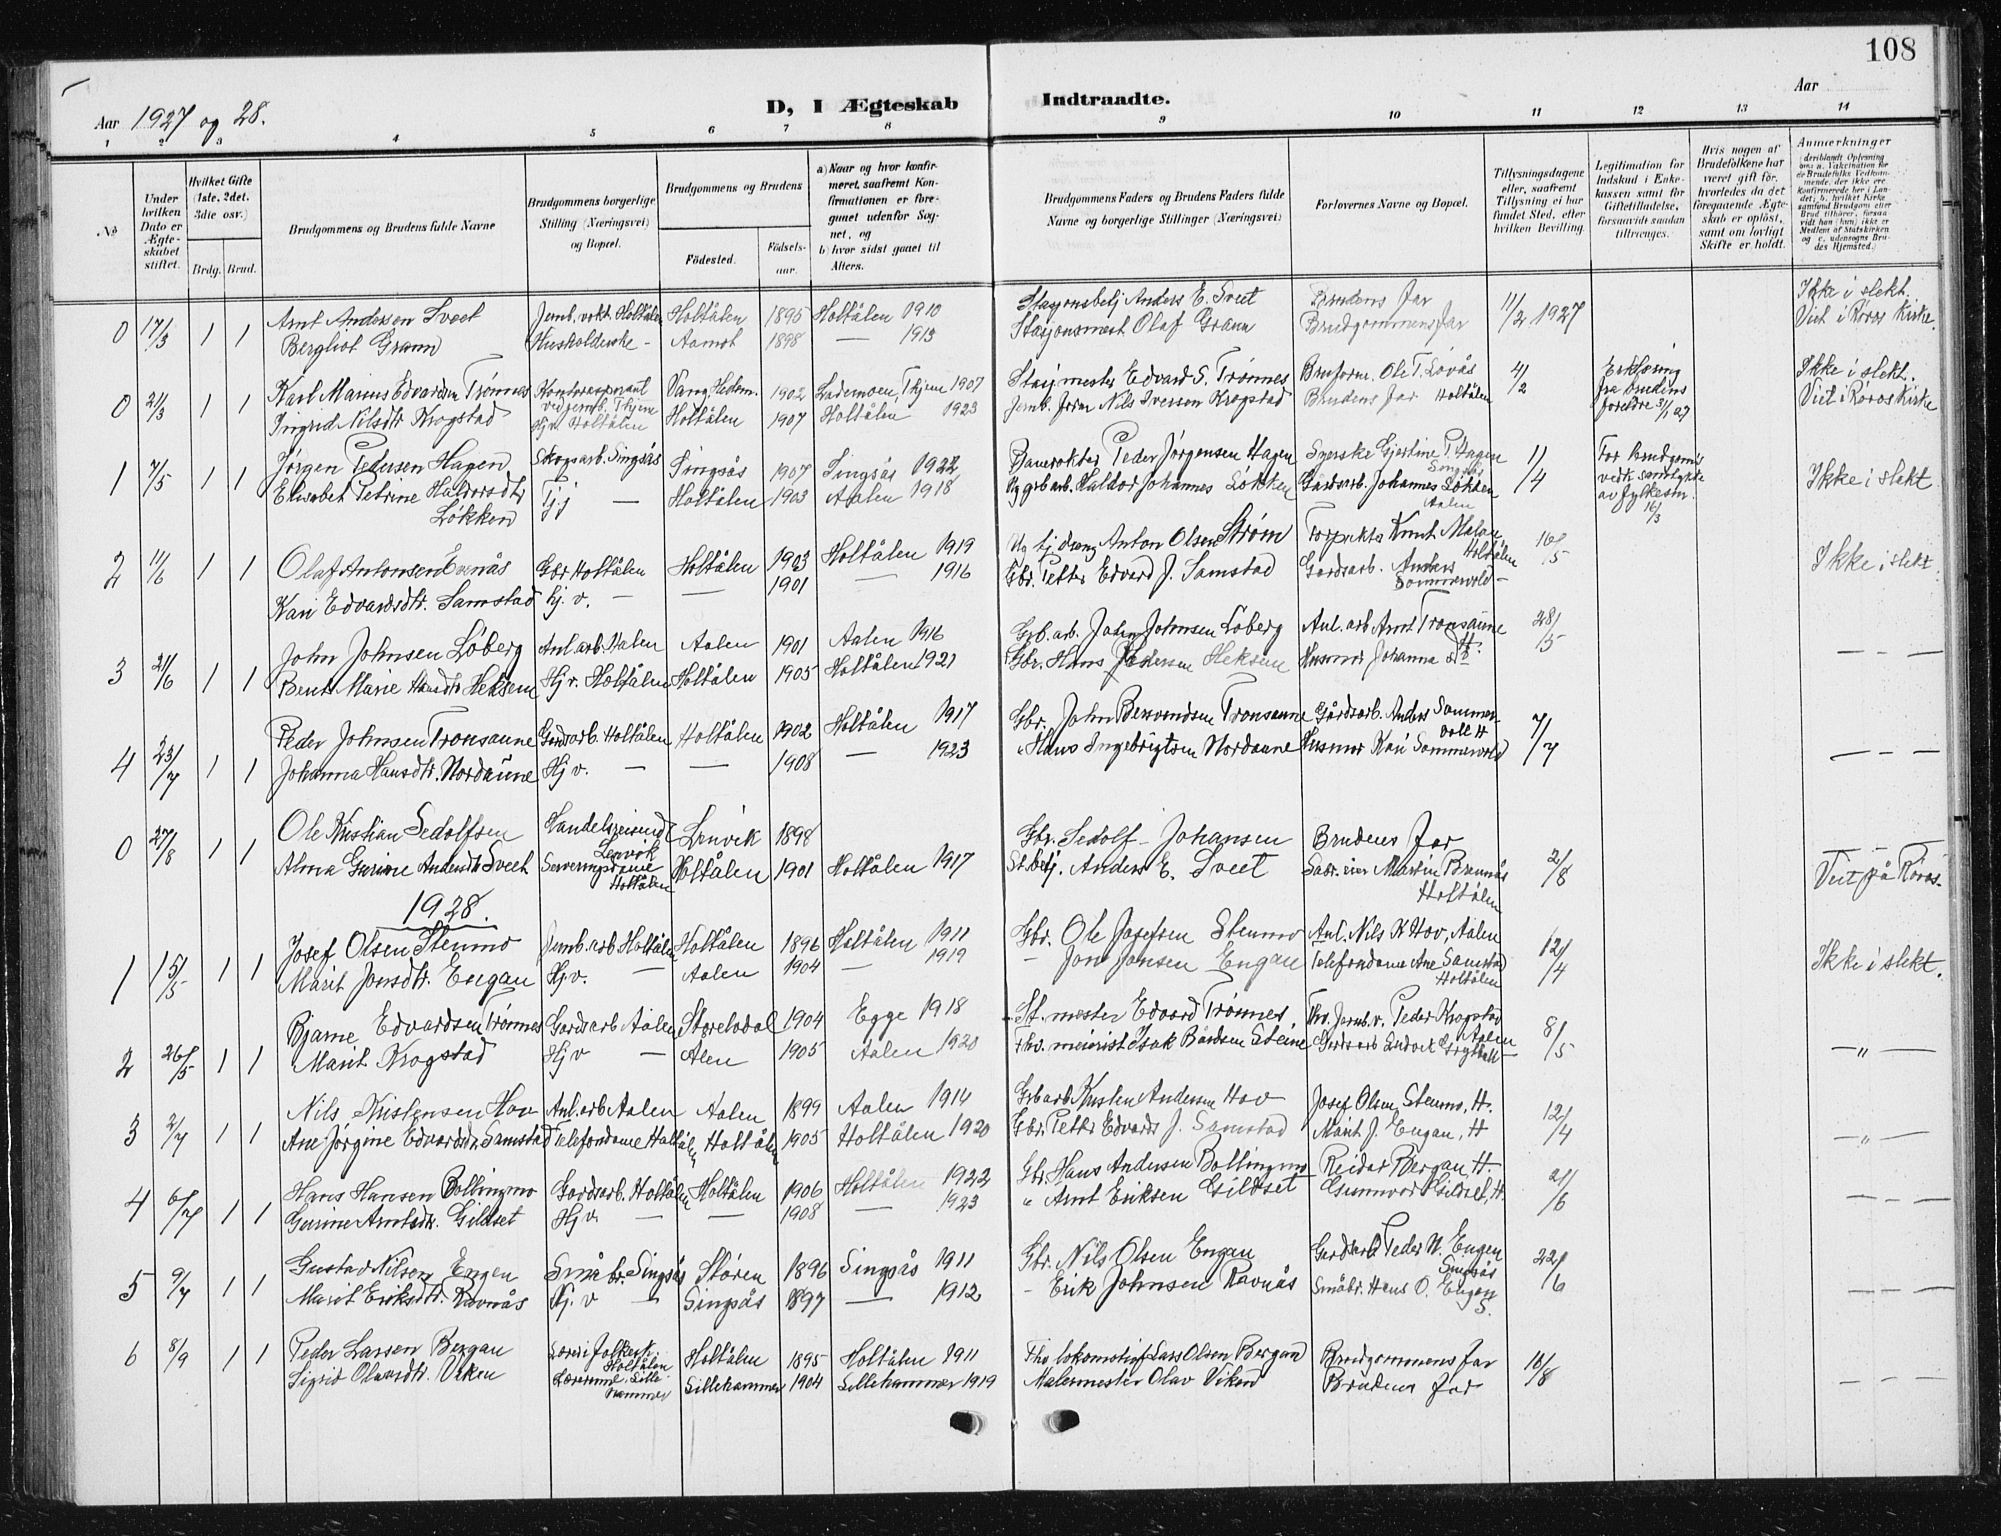 108
Aar 1927 og 28.
D, I Ægteskab Indtraadte.
Aar
1 2 3 4 5 6 7 8 9 10 11 12 13 14
No
Under hvilken Dato er Ægteskabet stiftet.
Hvilket Gifte (1ste, 2det, 3die osv.)
Brdg. Brud.
Brudgommens og Brudens fulde Navne
Brudgommens borgerlige Stilling (Næringsvei) og Bopæl.
Brudgommens og Brudens
Fødested.
Fødselsaar.
a) Naar og hvor konfirmeret, saafremt Konfirmationen er foregaaet udenfor Sognet, og
b) hvor sidst gaaet til Alters.
Brudgommens Faders og Brudens Faders fulde Navne og borgerlige Stillinger (Næringsvei)
Forlovernes Navne og Bopæl.
Tillysningsdagene eller, saafremt Tillysning ei har fundet Sted, efter hvilken Bevilling.
Legitimation for Indskud i Enkekassen samt for Giftetilladelse, forsaavidt saadan tiltrænges.
Hvis nogen af Brudefolkene har været gift før, hvorledes da det foregaaende Ægteskab er opløst, samt om lovligt Skifte er holdt.
Anmærkninger
0 17/3 1 1 Arnt Andersen Sveet Jernb. vokt. Holtålen Holtålen 1895 Holtålen 1910 Stasjonsbetj Anders E. Sveet Brudens far 11/2 1927 Ikke i slekt.
Bergliot Grann Husholderske - Aamot 1898 — 1913 Stasjonsmest Olaf Grann Brudgommens far Viet i Røros Kirke.
0 21/3 1 1 Karl Marius Edvardsen Trønnes Vang, Hedm. 1902 Lademoen, Thjem 1907 Stasj mester Edvard S. Trønnes Ole T. Løvås 4/2 Erklæring fra brudens foreldre 3/1 27 Ikke i slekt.
Ingrid Nilsdtr Krogstad Hjv. Holtålen Holtålen 1907 Holtålen - 1923 Jernb. form Nils Iversen Krogstad Brudens far Holtålen Viet i Røros Kirke
1 7/5 1 1 Jørgen Pedersen Hagen Skogsarb. Singsås Singsås 1907 Singsås 1922 Banevokter Peder Jørgensen Hagen Gjertine P. Hagen Singsås 11/4 For brudgommens vedk. samtykke av fylkesm. 16/3 Ikke i slekt
Elisabet Petrine Haldorsdtr Løkken Tjj — Holtålen 1903 Aalen 1918 Haldor Johannes Løkken Gårdsarb. Johannes Løkken Aalen
2 11/6 1 1 Olaf Antonsen Evenås Holtålen Holtålen 1903 Holtålen 1919 Anton Olsen Strøm Knut Moan, Holtålen 16/5 Ikke i slekt.
Kari Edvardsdtr. Samstad hj. v. — — 1901 — 1916 Gbr. Petter Edvard J. Samstad Gårdsarb. Anders Sommervold —
3 21/6 1 1 John Johnsen Løberg Anl. arb. Aalen Aalen 1901 Aalen 1916 Grb. arb. John Johnsen Løberg Anl. arb Arnt Tronsaune H. 28/5 — — —
Berit Marie Hansdtr Heksem Hj v. Holtålen Holtålen 1905 Holtålen 1921 Gbr. Hans Pedersen Heksem Husmor Johanna
4 23/7 1 1 Peder Johnsen Tronsaune Gårdsarb. Holtålen Holtålen 1902 Holtålen 1917 Gbr. John Tronsaune Gårdsarb. Anders Sommervold H 7/7 — — —
Johanna Hansdtr. Nordaune Hj v. — — 1908 — 1923 Hans Ingebrigtsen Nordaune Husmor Kari Sommervold
0 27/8 1 1 Ole Kristian Sedolfsen Handelsreisende Lenvik Lenvik 1898 Gbr. Sedolf Johansen Brudens far 2/8
Alma Gurine Andersdtr Sveet Serveringsdame Holtålen Holtålen 1901 Holtålen 1917 St. betj. Anders E. Sveet Martin Brenås Holtålen Viet på Røros.
1928.
1 15/5 1 1 Josef Olsen Stenmo Jernb. arb Holtålen Holtålen 1896 Holtålen 1911 Gbr. Ole Josefsen Stenmo Anl. Nils K Hov, Aalen 12/4 Ikke i slekt.
Marit Jonsdtr. Engan Hj v. — Aalen 1904 — 1919 — Jon Jonsen Engan Telefondame Ane Samstad Holtålen
2 26/5 1 1 Bjarne Edvardsen Trønnes Gårdsarb Aalen Storelvdal 1904 Egge 1918 St. mester Edvard Trønnes Peder Krogstad Aalen 8/5 — „ —
Marit Krogstad Hj v — Alen 1905 Aalen 1920 Fhv. meierist Isak Bårdsen Steine Gårdsarb Ludvik —
3 2/7 1 1 Nils Kristensen Hov Anl. arb Aalen Aalen 1899 Aalen 1914 Grb arb Kristen Andersen Hov Josef Olsen Stenmo, H. 12/4 — „ —
Ane Jørgine Edvardsdtr Samstad Telefondame Holtålen Holtålen 1905 Holtålen 1920 Gbr. Petter Edvard J. Samstad Marit J. Engan, H
4 6/7 1 1 Hans Hansen Bollingmo Gårdsarb. Holtålen Holtålen 1906 Holtålen 1922 Gbr. Hans Andersen Bollingmo Reidar Bergan H. 21/6 — — —
Gurine Arntsdtr. Gildset Hj v. — — 1908 — 1923 „ Arnt Eriksen Gildset Gunnvor Gildset, H.
5 9/7 1 1 Gustav Nilsen Engen Småbr. Singsås Støren 1896 Singsås 1911 Gbr. Nils Olsen Engan Gårdsarb Peder N. Engen Singsås 22/6 — — —
Marit Eriksdtr. Ravnås Hj. v — Singsås 1897 — 1912 - Erik Johnsen Ravnås Småbr. Hans O. Engen S.
6 8/9 1 1 Peder Larsen Bergan Holtålen Holtålen 1895 Holtålen 1911 Lars Olsen Bergan Brudgommens far 18/8 — — —
Sigrid Olavsdtr. Viken Lærerinne, Lillehammer Lillehammer 1904 Lillehammer 1919 Malermester Olav Viken Brudens far